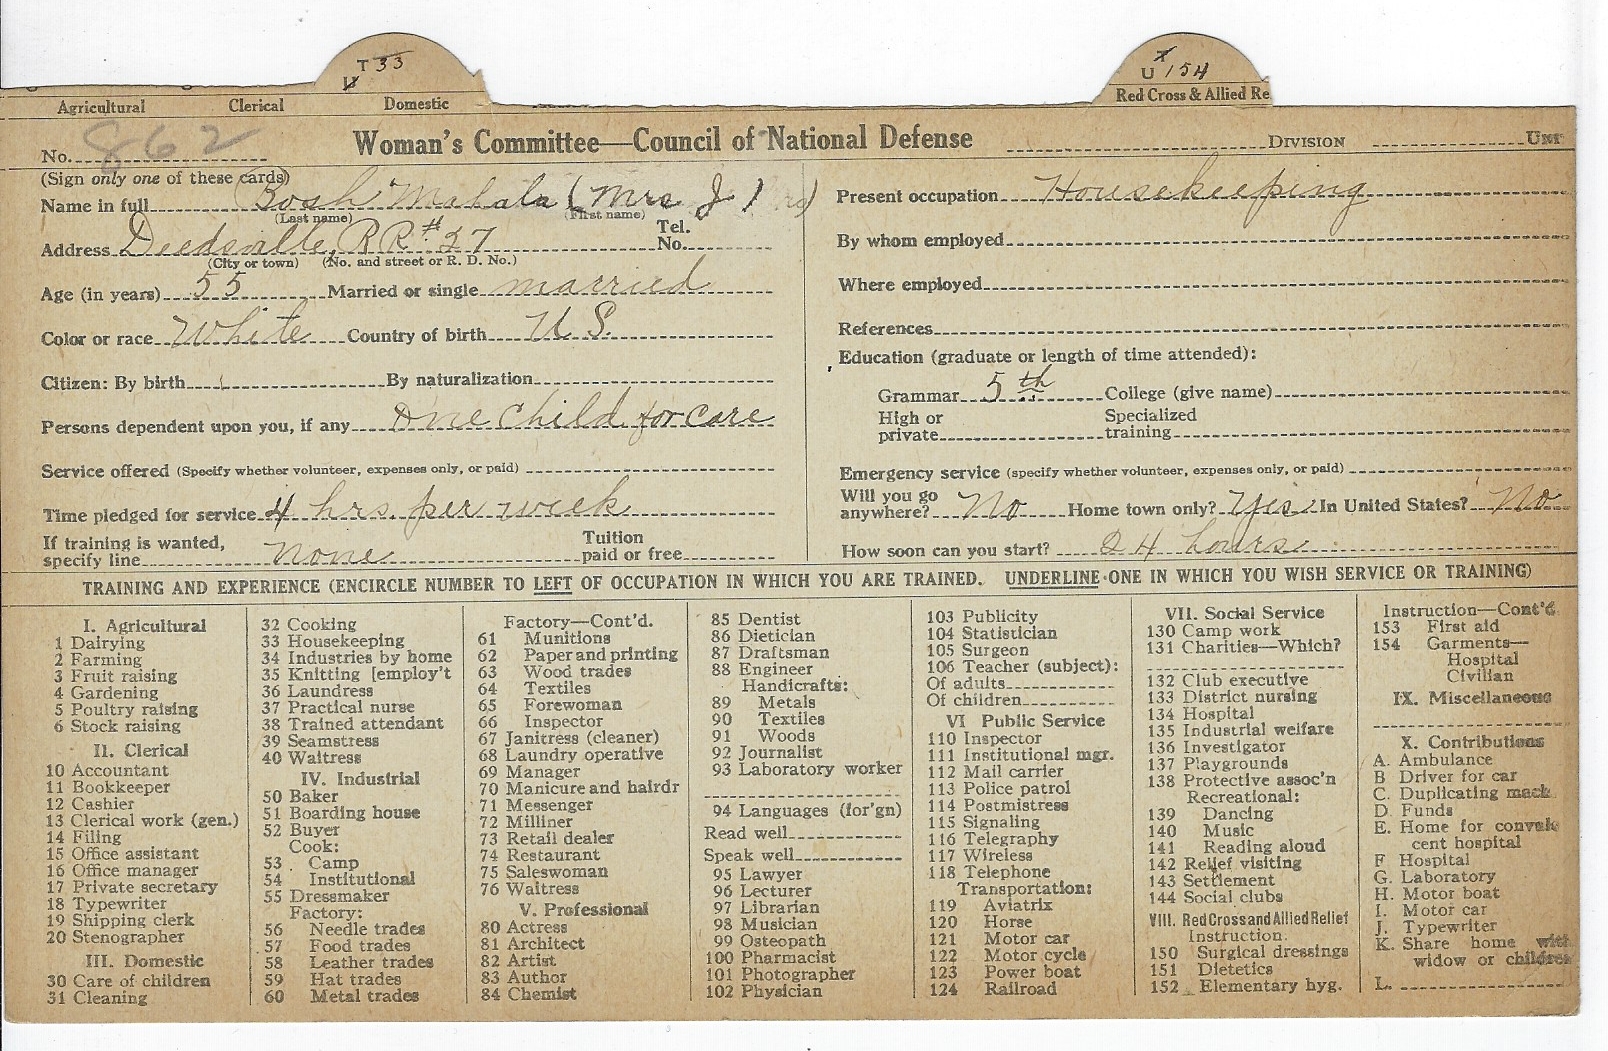 T 33
U
U 154
Agricultural Clerical Domestic Red Cross & Allied Re
No. 862 Woman's Committee—Council of National Defense DIVISION UNIT
(Sign only one of these cards)
Name in full Bosh Mahala (Mrs J )
(Last name) (First name)
Address Deedsville, RR #27 Tel. No.
(City or town) (No. and street or R. D. No.)
Age (in years) 55 Married or single married
Color or race White Country of birth U S.
Citizen: By birth By naturalization
Persons dependent upon you, if any One Child for care
Service offered (Specify whether volunteer, expenses only, or paid)
Time pledged for service 4 hrs. per week
If training is wanted, specify line none Tuition paid or free
Present occupation Housekeeping
By whom employed
Where employed
References
Education (graduate or length of time attended):
Grammar 5th College (give name)
High or private Specialized training
Emergency service (specify whether volunteer, expenses only, or paid)
Will you go anywhere? No Home town only? Yes In United States? No
How soon can you start? 24 hours
TRAINING AND EXPERIENCE (ENCIRCLE NUMBER TO LEFT OF OCCUPATION IN WHICH YOU ARE TRAINED. UNDERLINE ONE IN WHICH YOU WISH SERVICE OR TRAINING)
I. Agricultural
1 Dairying
2 Farming
3 Fruit raising
4 Gardening
5 Poultry raising
6 Stock raising
II. Clerical
10 Accountant
11 Bookkeeper
12 Cashier
13 Clerical work (gen.)
14 Filing
15 Office assistant
16 Office manager
17 Private secretary
18 Typewriter
19 Shipping clerk
20 Stenographer
III. Domestic
30 Care of children
31 Cleaning
32 Cooking
33 Housekeeping
34 Industries by home
35 Knitting [employ't
36 Laundress
37 Practical nurse
38 Trained attendant
39 Seamstress
40 Waitress
IV. Industrial
50 Baker
51 Boarding house
52 Buyer
Cook:
53 Camp
54 Institutional
55 Dressmaker
Factory:
56 Needle trades
57 Food trades
58 Leather trades
59 Hat trades
60 Metal trades
Factory—Cont'd.
61 Munitions
62 Paper and printing
63 Wood trades
64 Textiles
65 Forewoman
66 Inspector
67 Janitress (cleaner)
68 Laundry operative
69 Manager
70 Manicure and hairdr
71 Messenger
72 Milliner
73 Retail dealer
74 Restaurant
75 Saleswoman
76 Waitress
V. Professional
80 Actress
81 Architect
82 Artist
83 Author
84 Chemist
85 Dentist
86 Dietician
87 Draftsman
88 Engineer
Handicrafts:
89 Metals
90 Textiles
91 Woods
92 Journalist
93 Laboratory worker
94 Languages (for'gn)
Read well
Speak well
95 Lawyer
96 Lecturer
97 Librarian
98 Musician
99 Osteopath
100 Pharmacist
101 Photographer
102 Physician
103 Publicity
104 Statistician
105 Surgeon
106 Teacher (subject):
Of adults
Of children
VI Public Service
110 Inspector
111 Institutional mgr.
112 Mail carrier
113 Police patrol
114 Postmistress
115 Signaling
116 Telegraphy
117 Wireless
118 Telephone
Transportation:
119 Aviatrix
120 Horse
121 Motor car
122 Motor cycle
123 Power boat
124 Railroad
VII. Social Service
130 Camp work
131 Charities—Which?
132 Club executive
133 District nursing
134 Hospital
135 Industrial welfare
136 Investigator
137 Playgrounds
138 Protective assoc'n
Recreational:
139 Dancing
140 Music
141 Reading aloud
142 Relief visiting
143 Settlement
144 Social clubs
VIII. Red Cross and Allied Relief
Instruction:
150 Surgical dressings
151 Dietetics
152 Elementary hyg.
Instruction—Cont'd
153 First aid
154 Garments—
Hospital
Civilian
IX. Miscellaneous
X. Contributions
A. Ambulance
B Driver for car
C. Duplicating mach
D. Funds
E. Home for convales
cent hospital
F Hospital
G. Laboratory
H. Motor boat
I. Motor car
J. Typewriter
K. Share home with
widow or children
L.